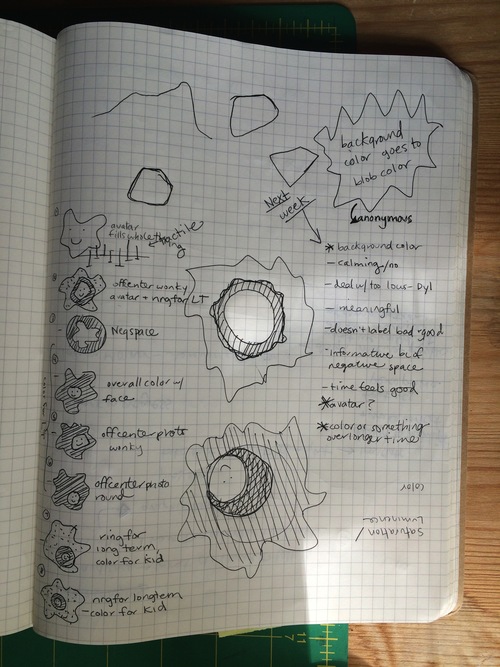 background
color goes to
blob color
anonymous
Next
week
avatar
fills whole thing
tactile
offcenter wonky
avatar + ring for LT
Negspace
overall color w/
face
offcenter photo
wonky
offcenter photo
round
ring for
long term,
color for kid
ring for longterm
- color for kid
* background color
- calming/no
- deal w/ too low - Dyl
- meaningful
- doesn't label bad-good
- informative b/c of
negative space
- time feels good
* avatar?
* color or something
over longer time
Color
Saturation/
Luminence
11